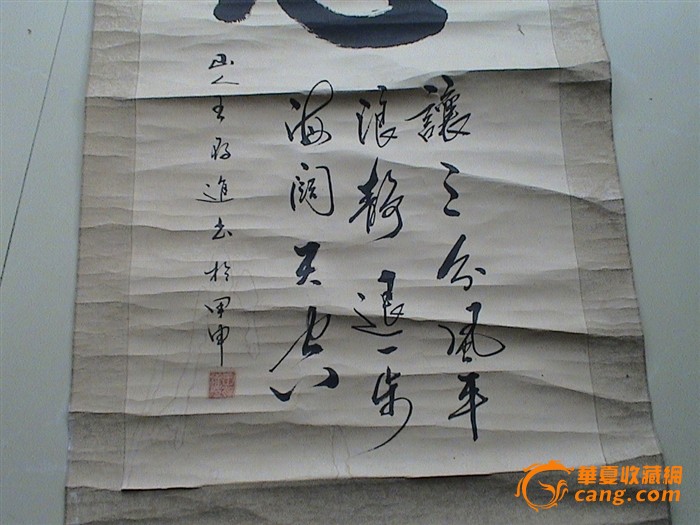 讓三分風平
浪靜退一步
海闊天空
山人王進书於甲申
華夏收藏網
cang.com